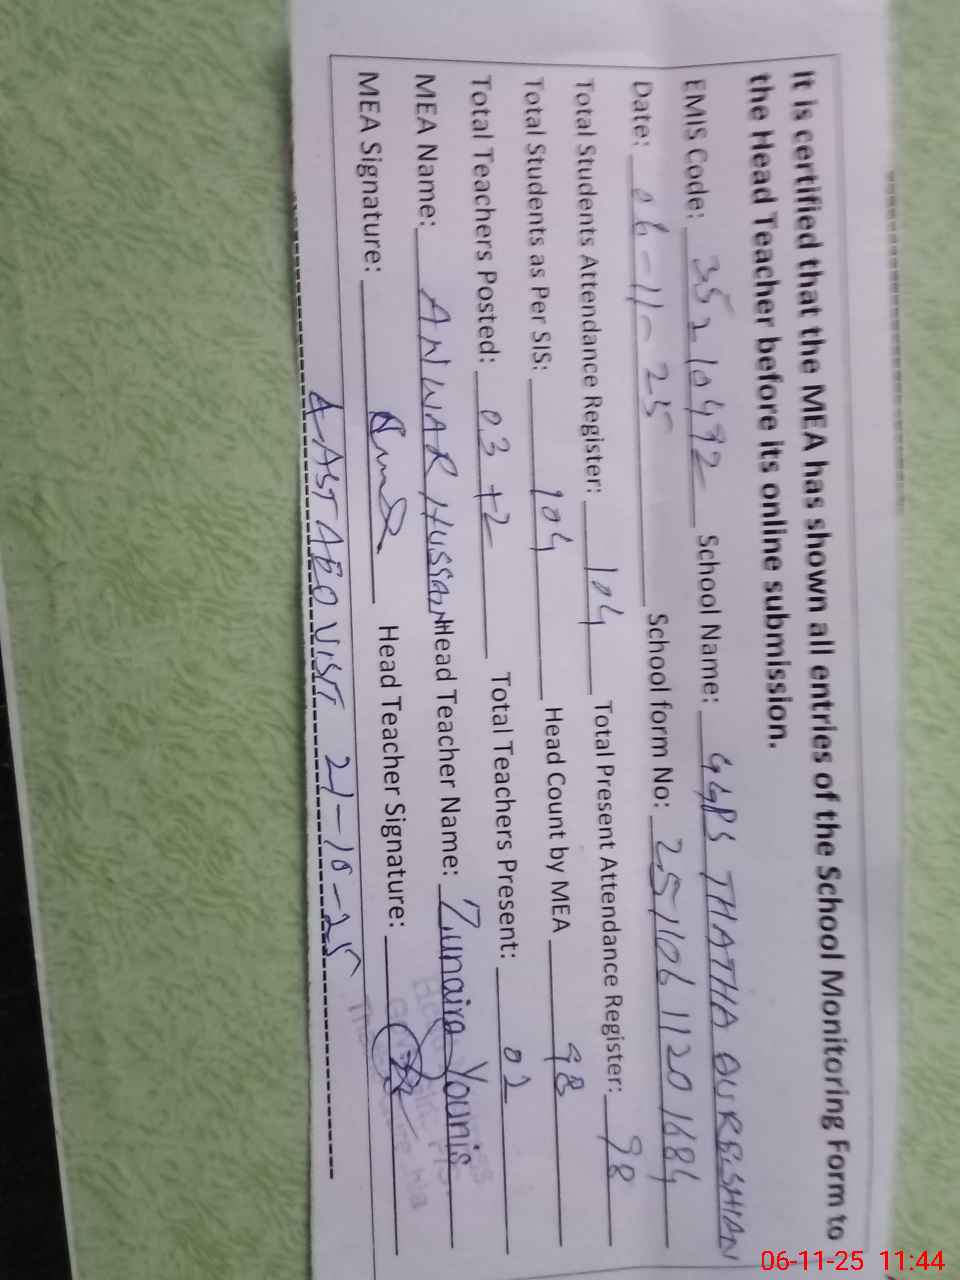 It is certified that the MEA has shown all entries of the School Monitoring Form to
the Head Teacher before its online submission.
EMIS Code: 35210492 School Name: GGPS THATHA QUREESHIAN
Date: 06-11-25 School form No: 251106 1120 1684
Total Students Attendance Register: 104 Total Present Attendance Register: 98
Total Students as Per SIS: 104 Head Count by MEA 98
Total Teachers Posted: 03+2 Total Teachers Present: 02
MEA Name: ANWAR HUSSAIN Head Teacher Name: Zunaira Younis
MEA Signature: Head Teacher Signature:
LAST AEO VISIT 21-10-25
06-11-25 11:44